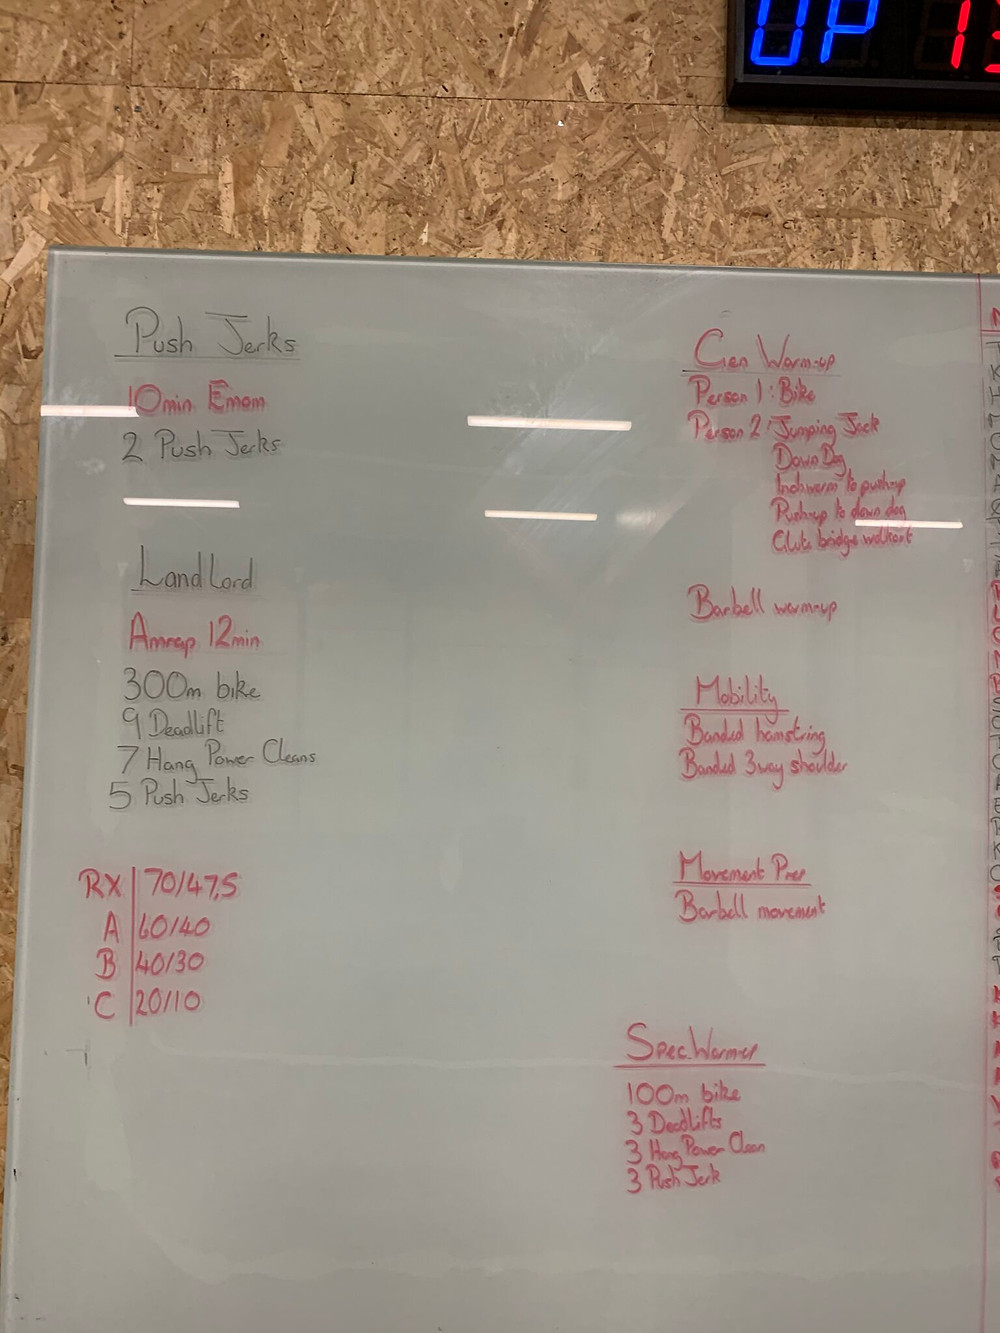 UP
Push Jerks
10min Emom
2 Push Jerks
LandLord
Amrap 12min
300m bike
9 Deadlift
7 Hang Power Cleans
5 Push Jerks
RX 70/47,5
A 60/40
B 40/30
C 20/10
Gen Warm-up
Person 1: Bike
Person 2: Jumping Jack
Down Dog
Inchworm to pushup
Push-up to down dog
Glute bridge walkout
Barbell warm-up
Mobility
Banded hamstring
Banded 3way shoulder
Movement Prep
Barbell movement
Spec. Warm-up
100m bike
3 Deadlifts
3 Hang Power Clean
3 Push Jerk